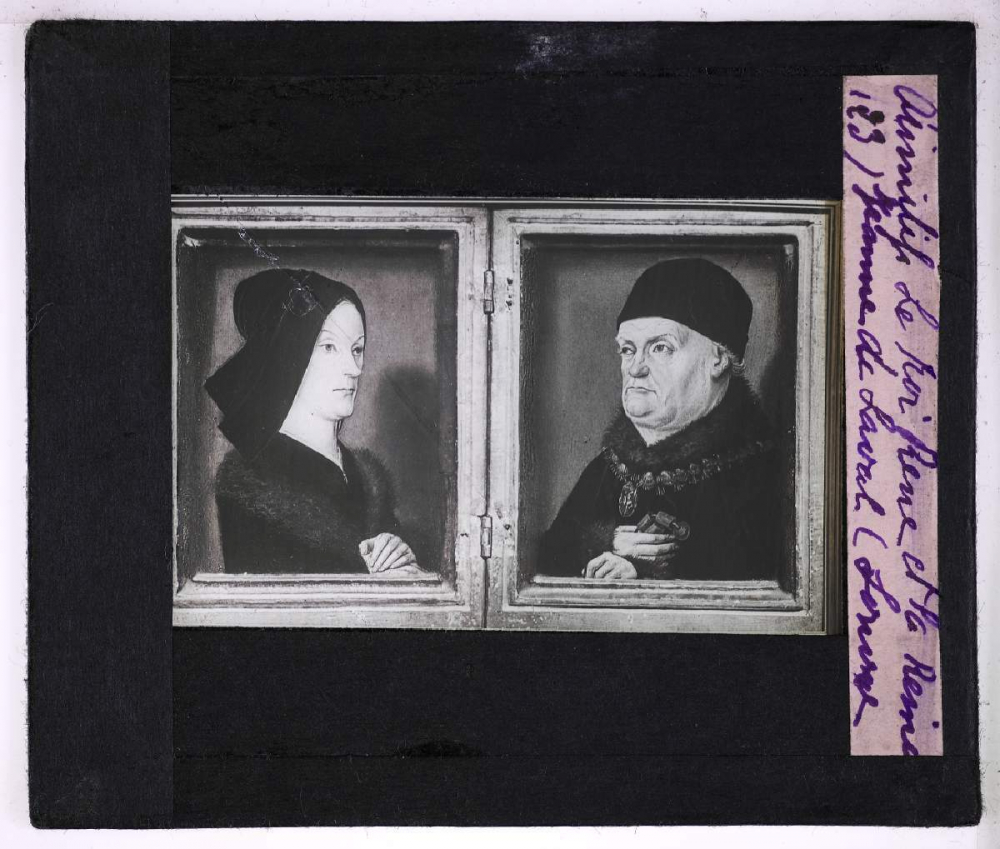 le Roi Rene et la Reine
123) Jeanne de Laval (Louvre